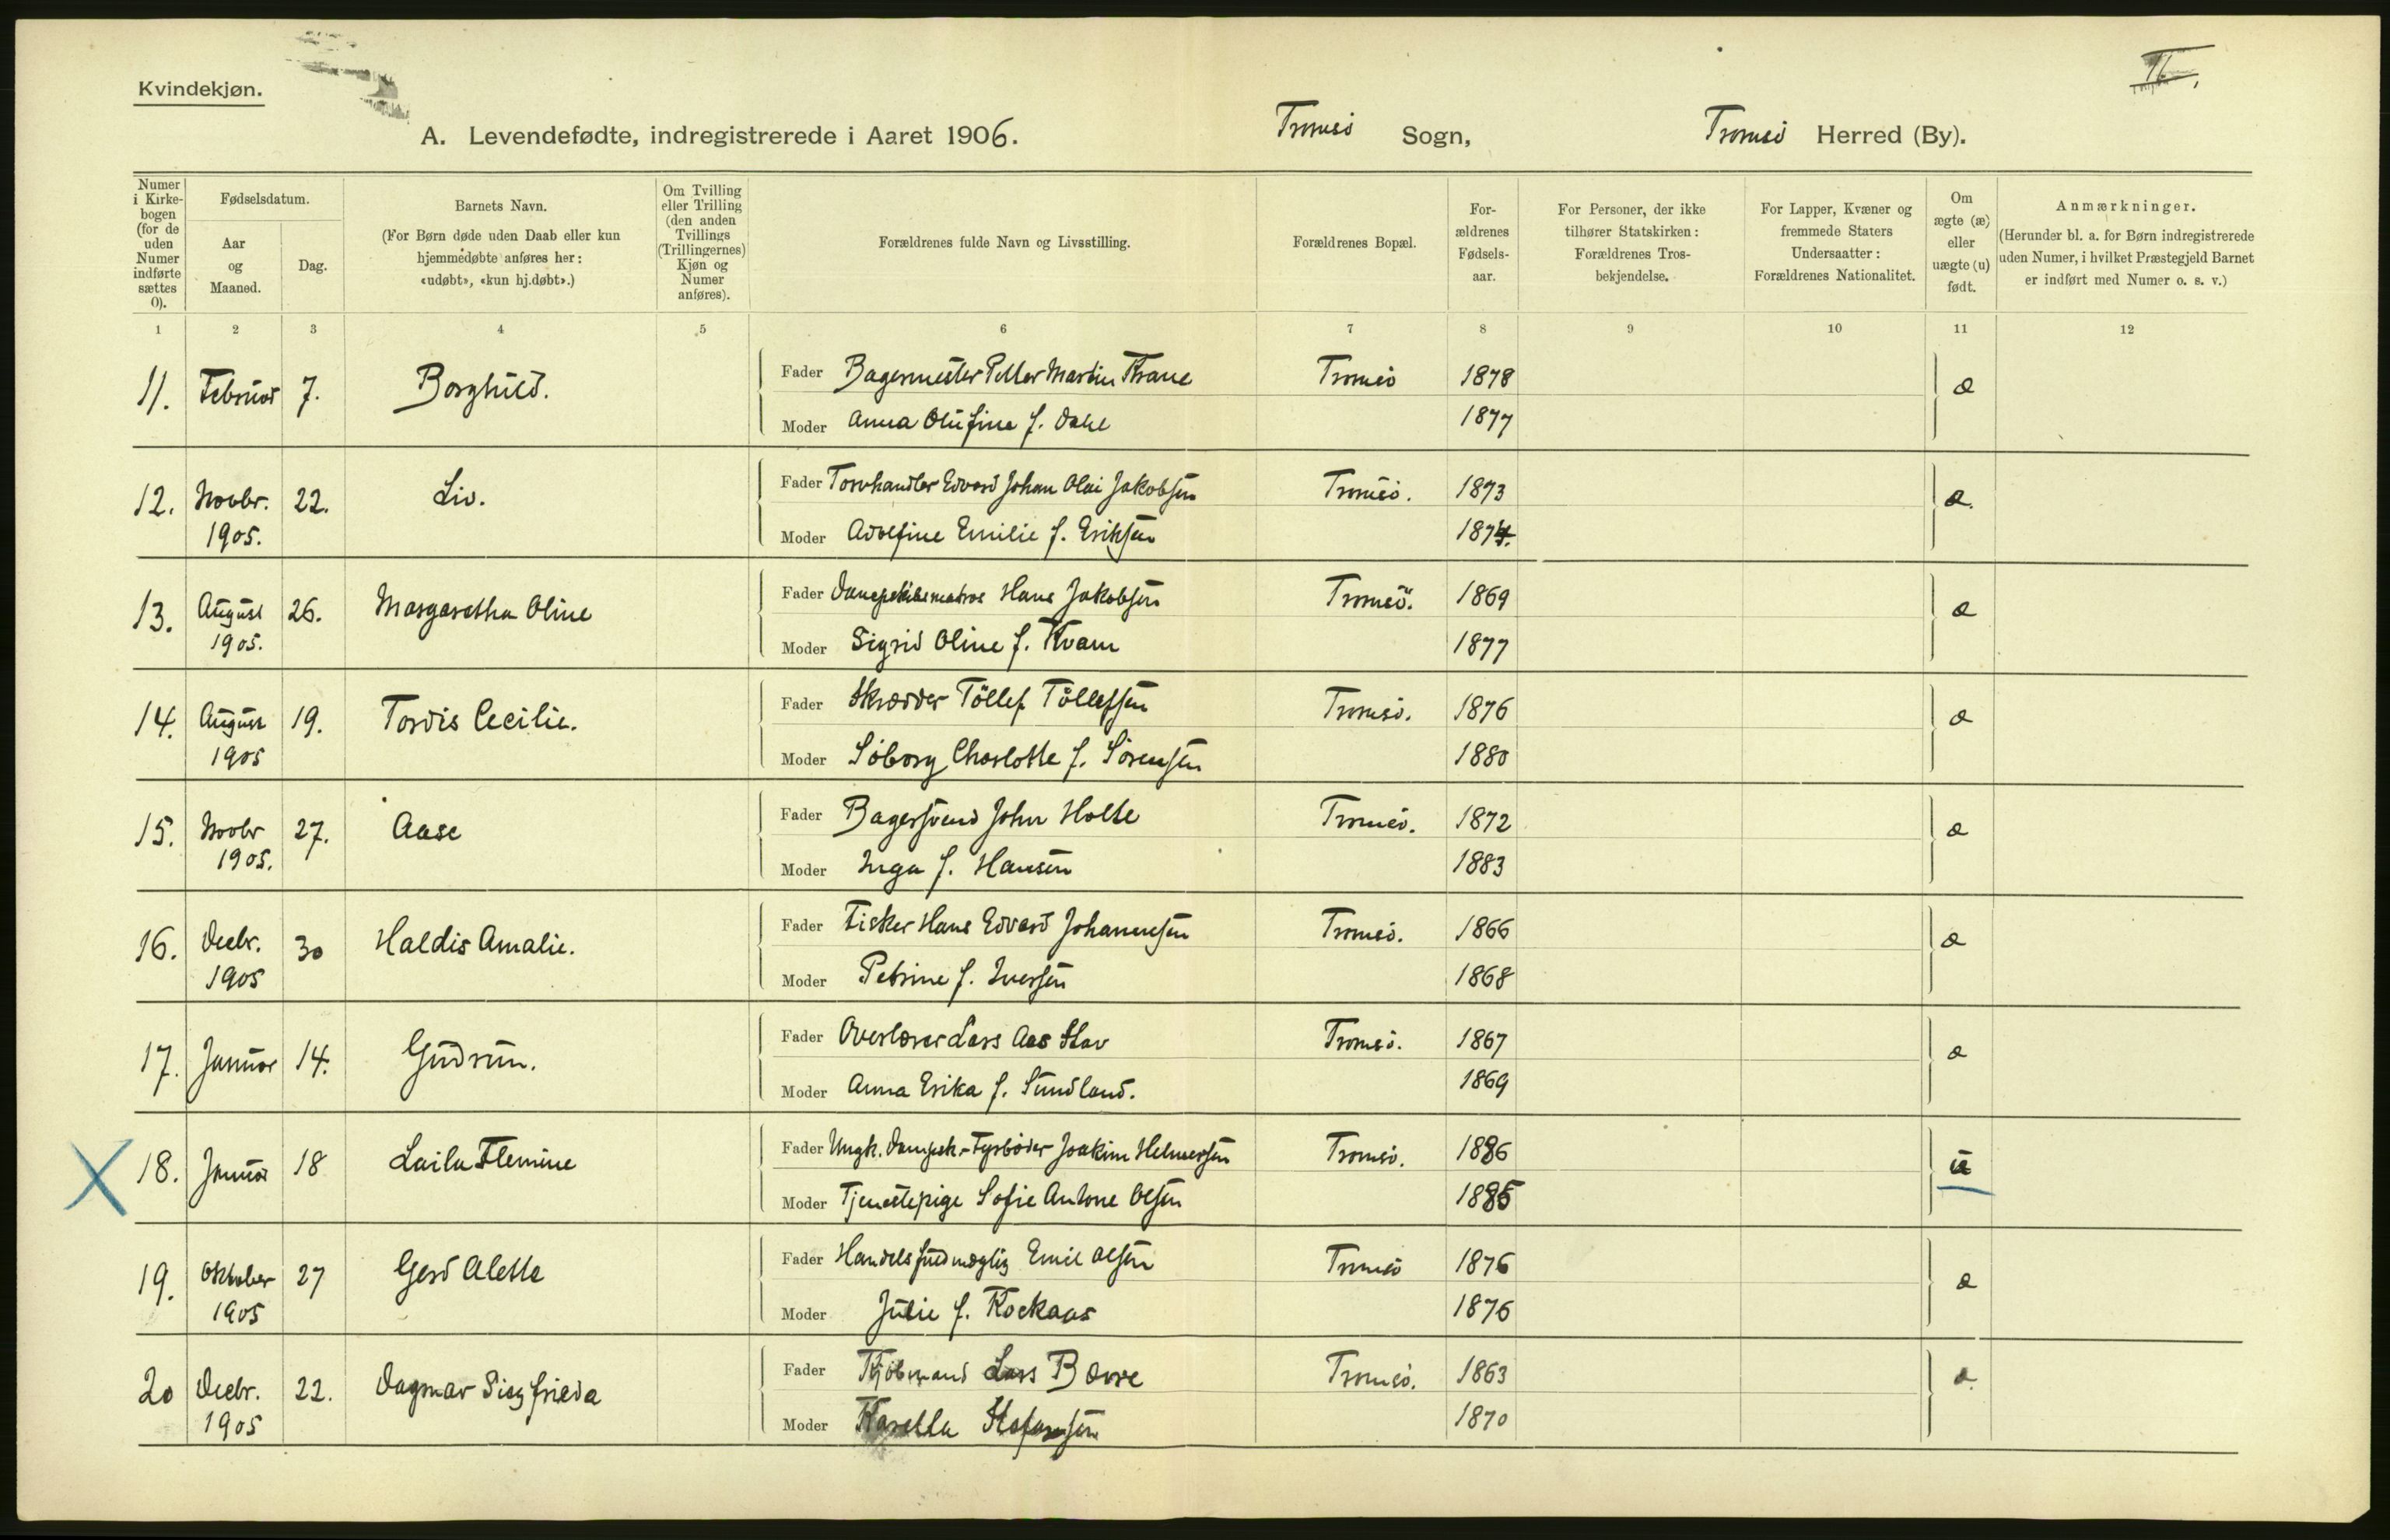 Kvindekjøn.
II.
A. Levendefødte, indregistrerede i Aaret 1906. Tromsö Sogn, Tromsö Herred (By).
Numer i Kirkebogen (for de uden Numer indførte sættes 0).
Fødselsdatum.
Aar og Maaned.
Dag.
Barnets Navn.
(For Børn døde uden Daab eller kun hjemmedøbte anføres her: «udøbt», «kun hj.døbt».)
Om Tvilling eller Trilling (den anden Tvillings (Trillingernes) Kjøn og Numer anføres).
Forældrenes fulde Navn og Livsstilling.
Forældrenes Bopæl.
For-ældrenes Fødsels-aar.
For Personer, der ikke tilhører Statskirken: Forældrenes Tros-bekjendelse.
For Lapper, Kvæner og fremmede Staters Undersaatter: Forældrenes Nationalitet.
Om ægte (æ) eller uægte (u) født.
Anmærkninger.
(Herunder bl. a. for Børn indregistrerede uden Numer, i hvilket Præstegjeld Barnet er indført med Numer o. s. v.)
1 2 3 4 5 6 7 8 9 10 11 12
11. Februar 7. Borghild. Fader Bagermester Petter Martin Thrane Tromsö 1878 æ
Moder Anna Olufine f. Dahl 1877
12. Novbr. 22. Liv. Fader Torvhandler Edvard Johan Olai Jakobsen Tromsö. 1873 æ.
1905. Moder Adolfine Emilie f. Eriksen 1874.
13. August 26. Margaretha Oline Fader Dampskibsmatros Hans Jakobsen Tromsö. 1869 æ
1905. Moder Sigrid Oline f. Kvam 1877
14. August 19. Tordis Cecilie. Fader Skrædder Töllef Töllefsen Tromsö. 1876 æ
1905 Moder Söborg Charlotte f. Sörensen 1880
15. Novbr 27. Aase Fader Bagersvend John Holte Tromsö. 1872 æ
1905. Moder Inga f. Hansen 1883
16. Decbr. 30 Haldis Amalie. Fader Fisker Hans Edvard Johannesen Tromsö. 1866 æ
1905 Moder Petrine f. Iversen 1868
17. Januar 14. Gudrun. Fader Overlærer Lars Aas Tromsö. 1867 æ
Moder Anna Erika f. Sundland. 1869
18. Januar 18 Laila Flemine Fader Ungk. Dampsk.-Fyrböder Joakim Helmersen Tromsö. 1886 u
Moder Tjenestepige Sofie Antone Olsen 1885
19. Oktober 27 Gerd Alette Fader Handelsfuldmægtig Emil Olsen Tromsö 1876 æ
1905 Moder Julie f. 1876
20 Decbr. 22. Dagmar Sigfrieda Fader Kjöbmand Lars Tromsö. 1863 æ.
1905 Moder 1870